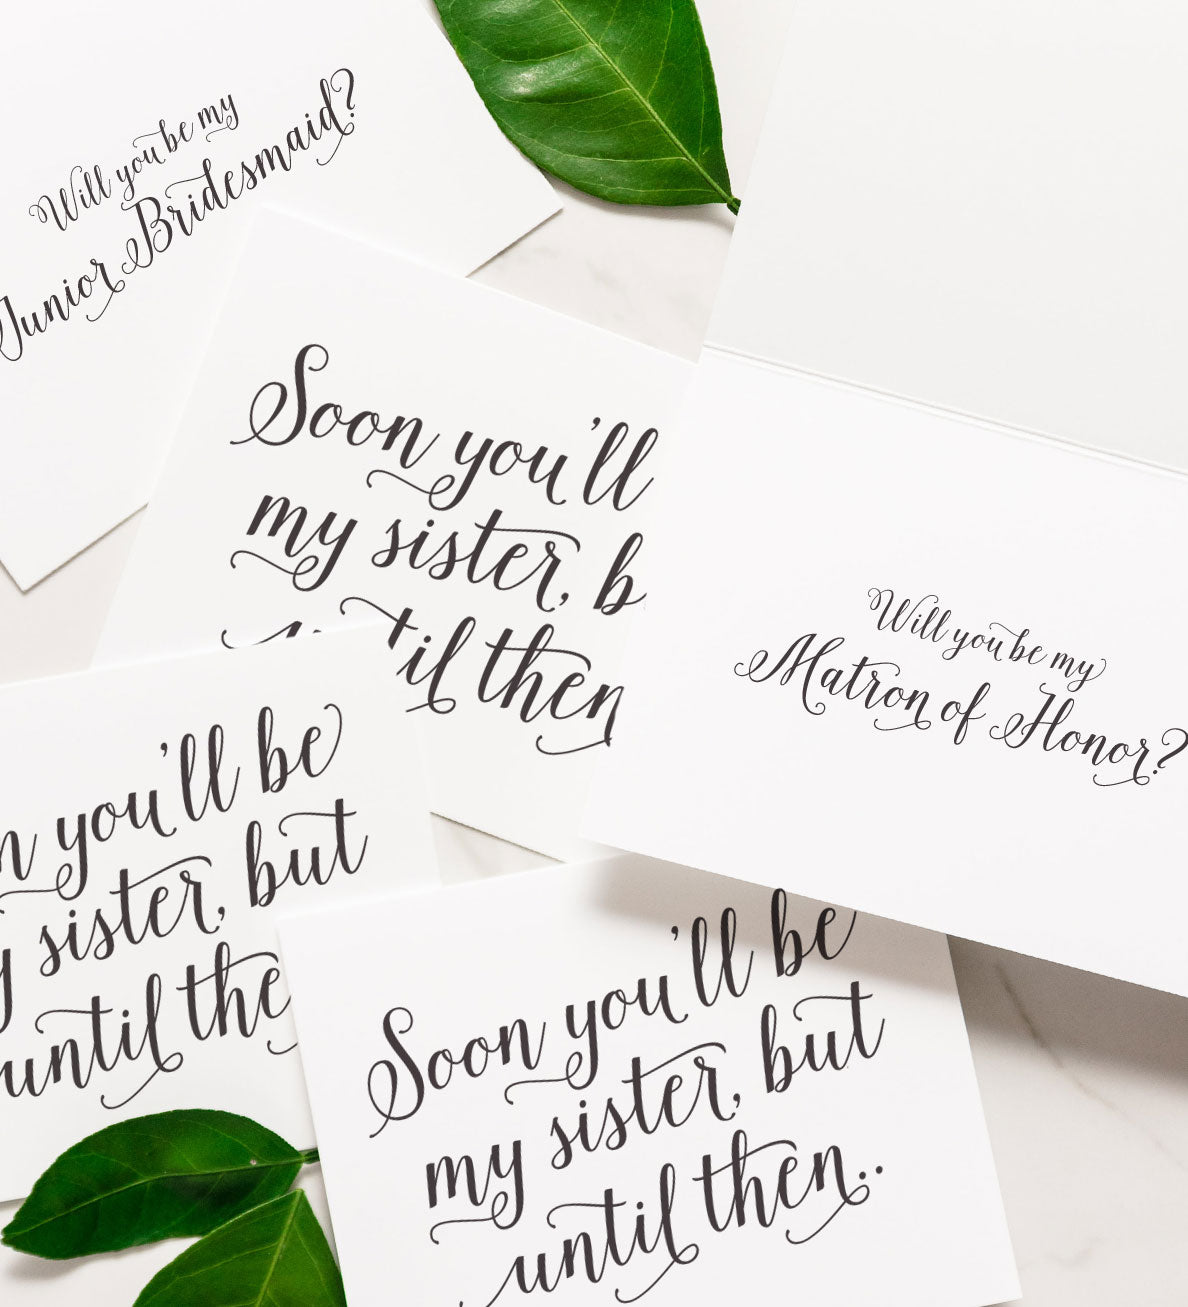 Will you be my
Junior Bridesmaid?
Soon you'll
my sister, b
til then
Will you be my
Matron of Honor?
n you'll be
y sister, but
until the
Soon you'll be
my sister, but
until then..